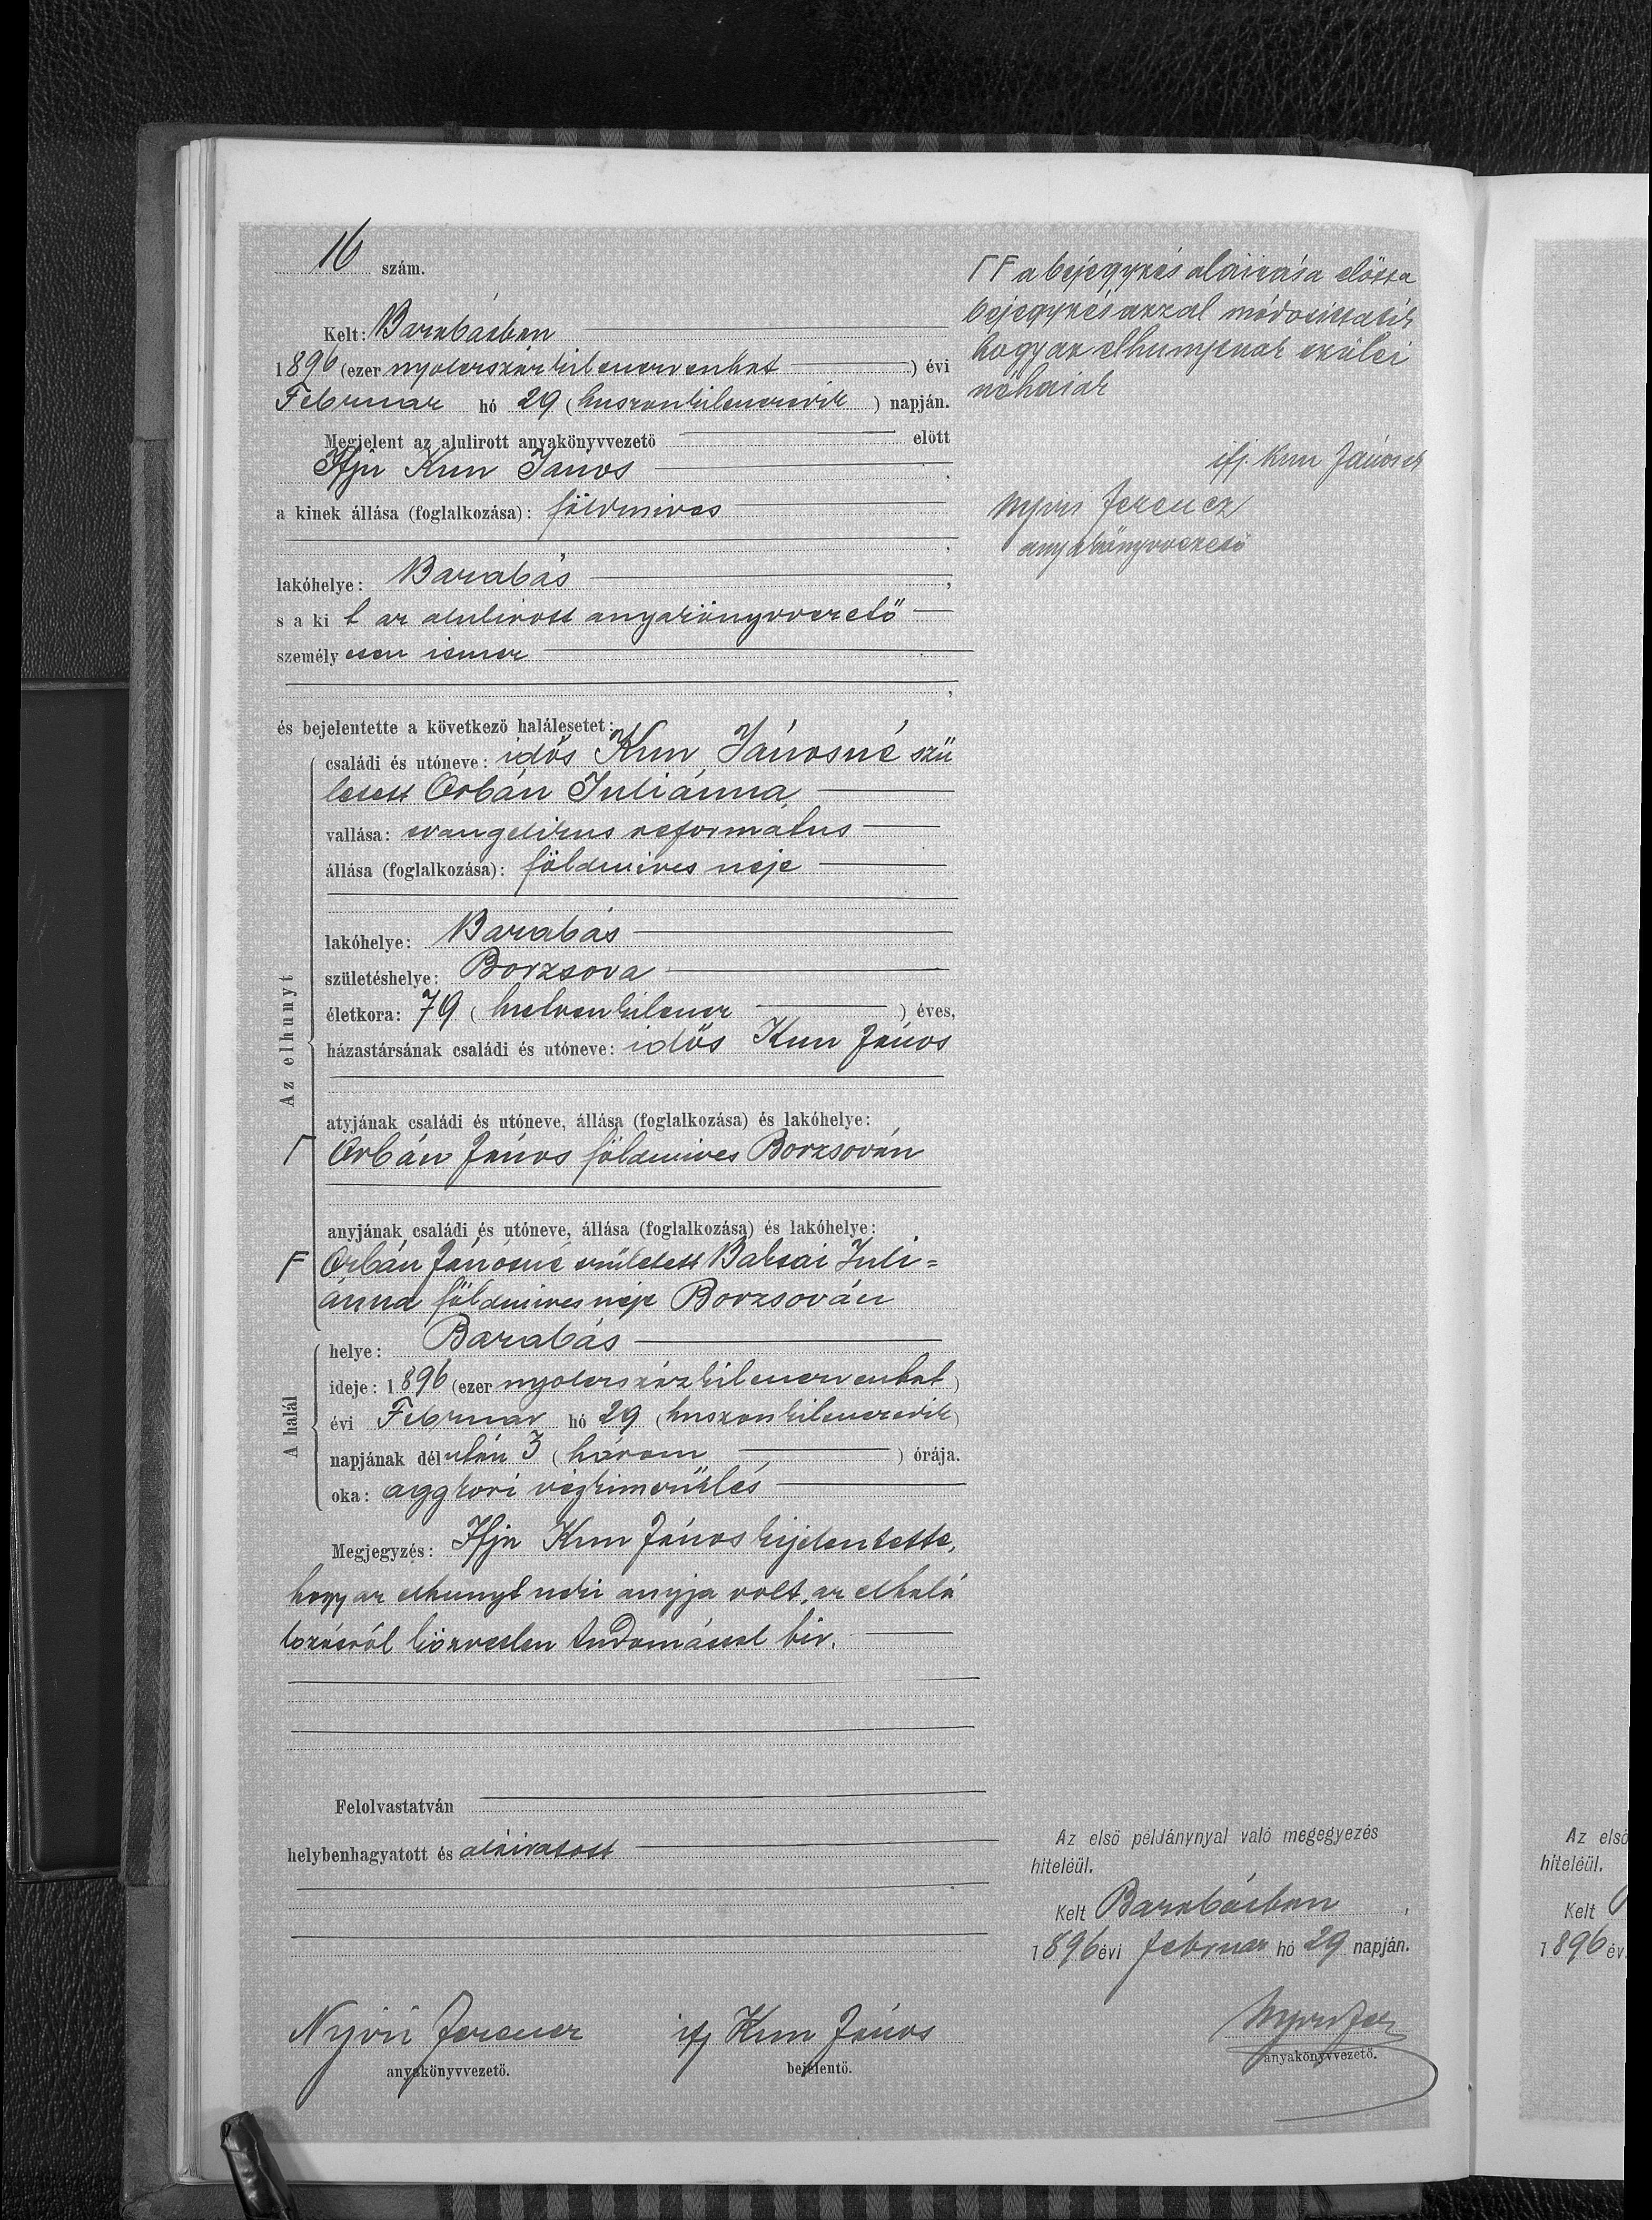 16 szám.
Kelt: Barabásban
1896 (ezer nyolczszázkilenczvenhat) évi
Február hó 29 (huszonkilenczedik) napján.
Megjelent az alulirott anyakönyvvezető előtt
Ifjú Kun János
a kinek állása (foglalkozása): földmives
lakóhelye: Barabás,
s a ki t az alulirott anyakönyvvezető
személy esen ismer
és bejelentette a következő halálesetet:
Az elhunyt
családi és utóneve: idős Kun Jánosné szü
letett Orbán Juliánna,
vallása: evangelikus reformatus
állása (foglalkozása): földmives neje
lakóhelye: Barabás
születéshelye: Borzsova
életkora: 79 (hetvenkilencz) éves,
házastársának családi és utóneve: idős Kun János
atyjának családi és utóneve, állása (foglalkozása) és lakóhelye:
Γ Orbán János földmives Borzsován
anyjának családi és utóneve, állása (foglalkozása) és lakóhelye:
F Orbán Jánosné született Baksai Juli=
ánna földmives neje Borzsován
A halál
helye: Barabás
ideje: 1896 (ezer nyolczszázkilenczvenhat)
évi Február hó 29 (huszonkilenczedik)
napjának délután 3 (három) órája.
oka: aggkori végkimerülés
Megjegyzés: Ifju Kun János kijelentette,
hogy az elhunyt neki anyja volt, az elhalá
lozásról közvetlen tudomással bir.
Felolvastatván
helybenhagyatott és aláiratott
Nyiri Ferencz
anyakönyvvezető.
ifj Kun János
bejelentő.
Γ F a bejegyzés aláirása előtt a
bejegyzés azzal módosittatik
hogy az elhunytnak szülei
néhaiak
ifj. Kun János sk
Nyiri Ferencz
anyakönyvvezető
Az első példánynyal való megegyezés
hiteléül.
Kelt Barabásban,
1896 évi február hó 29 napján.
Nyiri Fer
anyakönyvvezető.
Az első
hiteléül.
Kelt
1896 év